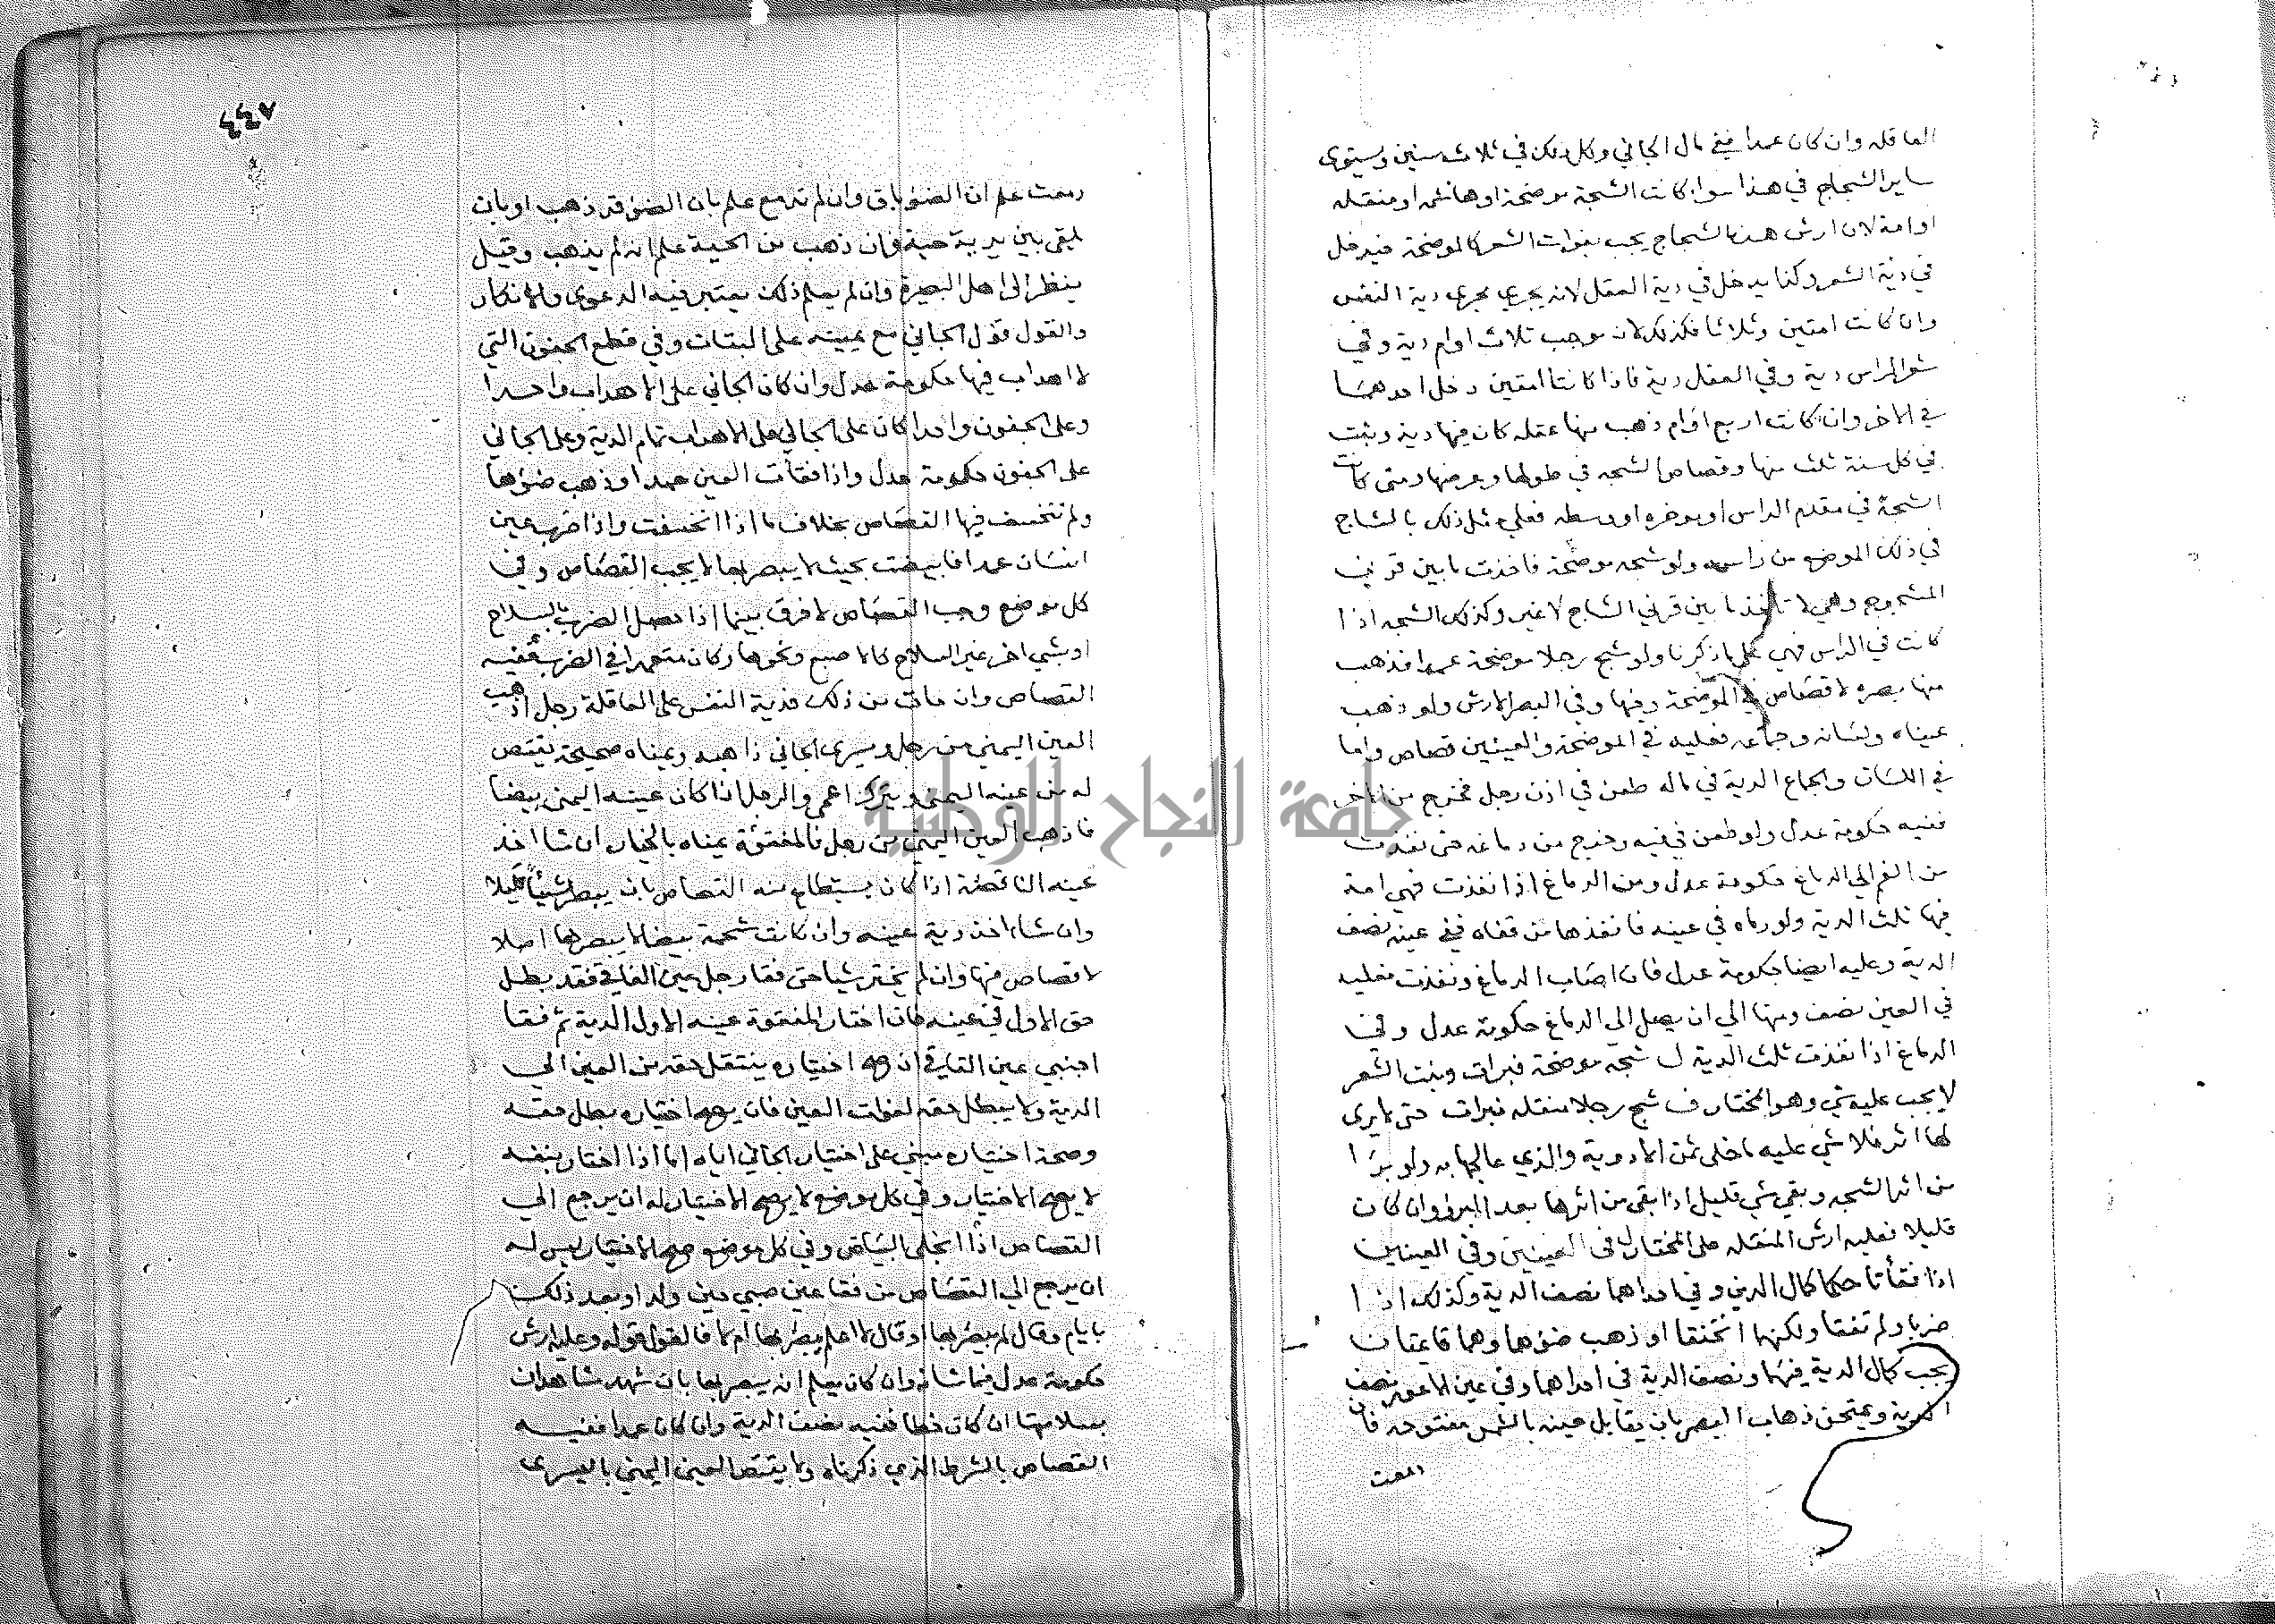 العاقله وان كان عمدا ففي مال الجاني وكل ذلك في ثلاث سنين ويستوي
ساير الشجاج في هذا سوا كانت الشجة موضحة او هاشمه او منقله
او امة لان ارش هذه الشجاج يجب بفوات الشعر كالموضحة فيدخل
في دية الشعر وكذا يدخل في دية العقل لانه يجري مجري دية النفس
وان كانت امتين وثلاثا فكذلك لان موجب ثلاث اوام دية وفي
شعر الراس دية وفي العقل دية فاذا كانتا امتين دخل احدهما
في الاخر وان كانت اربع اوام ذهب منها عقله كان فيها دية وثلث
في كل سنة ثلث منها وقصاص الشجه في طولها وعرضها ومتى كانت
الشجة في مقدم الراس او موخره او وسطه فعلي مثل ذلك بالشاج
في ذلك الموضع من راسه ولو شجه موضحة فاخذت ما بين قرني
المشجوج وهي لا تاخذ ما بين قرني الشاج لا غير وكذلك الشجه اذا
كانت في الراس فهي علي ما ذكرنا ولو شج رجلا موضحة عمدا فذهب
منها بصره لا قصاص في الموضحة وفيها وفي البصر الارش ولو ذهب
عيناه ولسانه وجماعه فعليه في الموضحة والعينين قصاص واما
في اللسان والجماع الدية في ماله طعن في اذن رجل فخرج من الاخر
ففيه حكومة عدل ولو طعن في فيه وخرج من دماغه حتى نفذت
من الفم الي الدماغ حكومة عدل ومن الدماغ اذا نفذت فهي امة
فيها ثلث الدية ولو رماه في عينه فانفذها من قفاه ففي عينه نصف
الدية وعليه ايضا حكومة عدل فان اصاب الدماغ ونفذت فعليه
في العين نصف ومنها الي ان يصل الي الدماغ حكومة عدل وفي
الدماغ اذا نفذت ثلث الدية شجه موضحة فبرات ونبت الشعر
لا يجب عليه شي وهو المختار ف شج رجلا منقله فبرات حتى لا يري
لها اثر فلا شي عليه ما خلي ثمن الادوية والذي عالجها به ولو برا
من اثر الشجه وبقي شي قليل اذا بقي من اثرها بعد البرؤ وان كان
قليلا فعليه ارش المنقله علي المختار في العينين وفي العينين
اذا فقأتا حكما كمال الدية وفي احداهما نصف الدية وكذلك اذا
ضربا ولم تفقا ولكنهما انخسفا او ذهب ضؤها وهما قايمتان
يجب كمال الدية فيهما ونصف الدية في احداهما وفي عين الاعور نصف
الدية ويمتحن ذهاب البصر بان يقابل عينه بالشمس مفتوحه فان
دمعت
٤٤٧
دمعت علم ان الضؤ باق وان لم تدمع علم بان الضؤ قد ذهب او بان
يلقي بين يديه حية فان ذهب من الحية علم انه لم يذهب وقيل
ينظر الي اهل البصيرة وان لم يعلم ذلك يعتبر فيه الدعوي والانكار
والقول قول الجاني مع يمينه علي البتات وفي قطع الجفون التي
لا اهداب فيها حكومة عدل وان كان الجاني علي الاهداب واحدا
وعلي الجفون واحدا كان علي الجاني علي الاهداب تمام الدية وعلي الجاني
علي الجفون حكومة عدل واذا فقأت العين عمدا وذهب ضؤها
ولم تنخسف فيها القصاص بخلاف ما اذا انخسفت واذا ضرب عين
انسان عمدا فابيضت بحيث لا يبصر بها لا يجب القصاص وفي
كل موضع وجب القصاص لا فرق بينما اذا حصل الضرب بالسلاح
او بشي اخر غير السلاح كالاصبع ونحوها وكان متعمدا في الضرب ففيه
القصاص وان مات من ذلك فدية النفس علي العاقلة رجل اذهب
العين اليمني من رجل ويسري الجاني ذاهبه ويمناه صحيحة يقتص
له من عينه اليمني ويترك اعمي والرجل اذا كان عينه اليمني بيضا
فاذهب العين اليمني من رجل فالمفقوة يمناه بالخيار ان شا اخذ
عينه الناقصة اذا كان يستطاع منه القصاص بان يبصر شيئا قليلا
وان شاء اخذ دية عينه وان كانت شحمة بيضا لا يبصر بها اصلا
لا قصاص فيها وان لم يختر شيا حتى فقا رجل عين الفاقي فقد بطل
حق الاول في عينه فان اختار المفقوة عينه الاول الدية ثم فقا
اجنبي عين الفاقي ان صح اختياره ينتقل حقه من العين الي
الدية ولا يبطل حقه لفوات العين فان يصح اختياره بطل حقه
وصحة اختياره مبني علي اختيار الجاني اياه اما اذا اختار بنفسه
لا يصح الاختيار وفي كل موضع لا يصح الاختيار له ان يرجع الي
القصاص اذا انجلي البياض وفي كل موضع صح الاختيار ليس له
ان يرجع الي القصاص من فقا عين صبي حين ولد او بعد ذلك
بايام وقال لم يبصر بها او قال لا اعلم يبصر بها ام لا فالقول قوله وعليه ارش
حكومة عدل فيما شانه وان كان يعلم انه يبصر بها بان شهد شاهدان
بسلامتها ان كان خطا ففيه نصف الدية وان كان عمدا ففيه
القصاص بالشرط الذي ذكرناه ولا يقتص العين اليمني باليسري
جامعة النجاح الوطنية